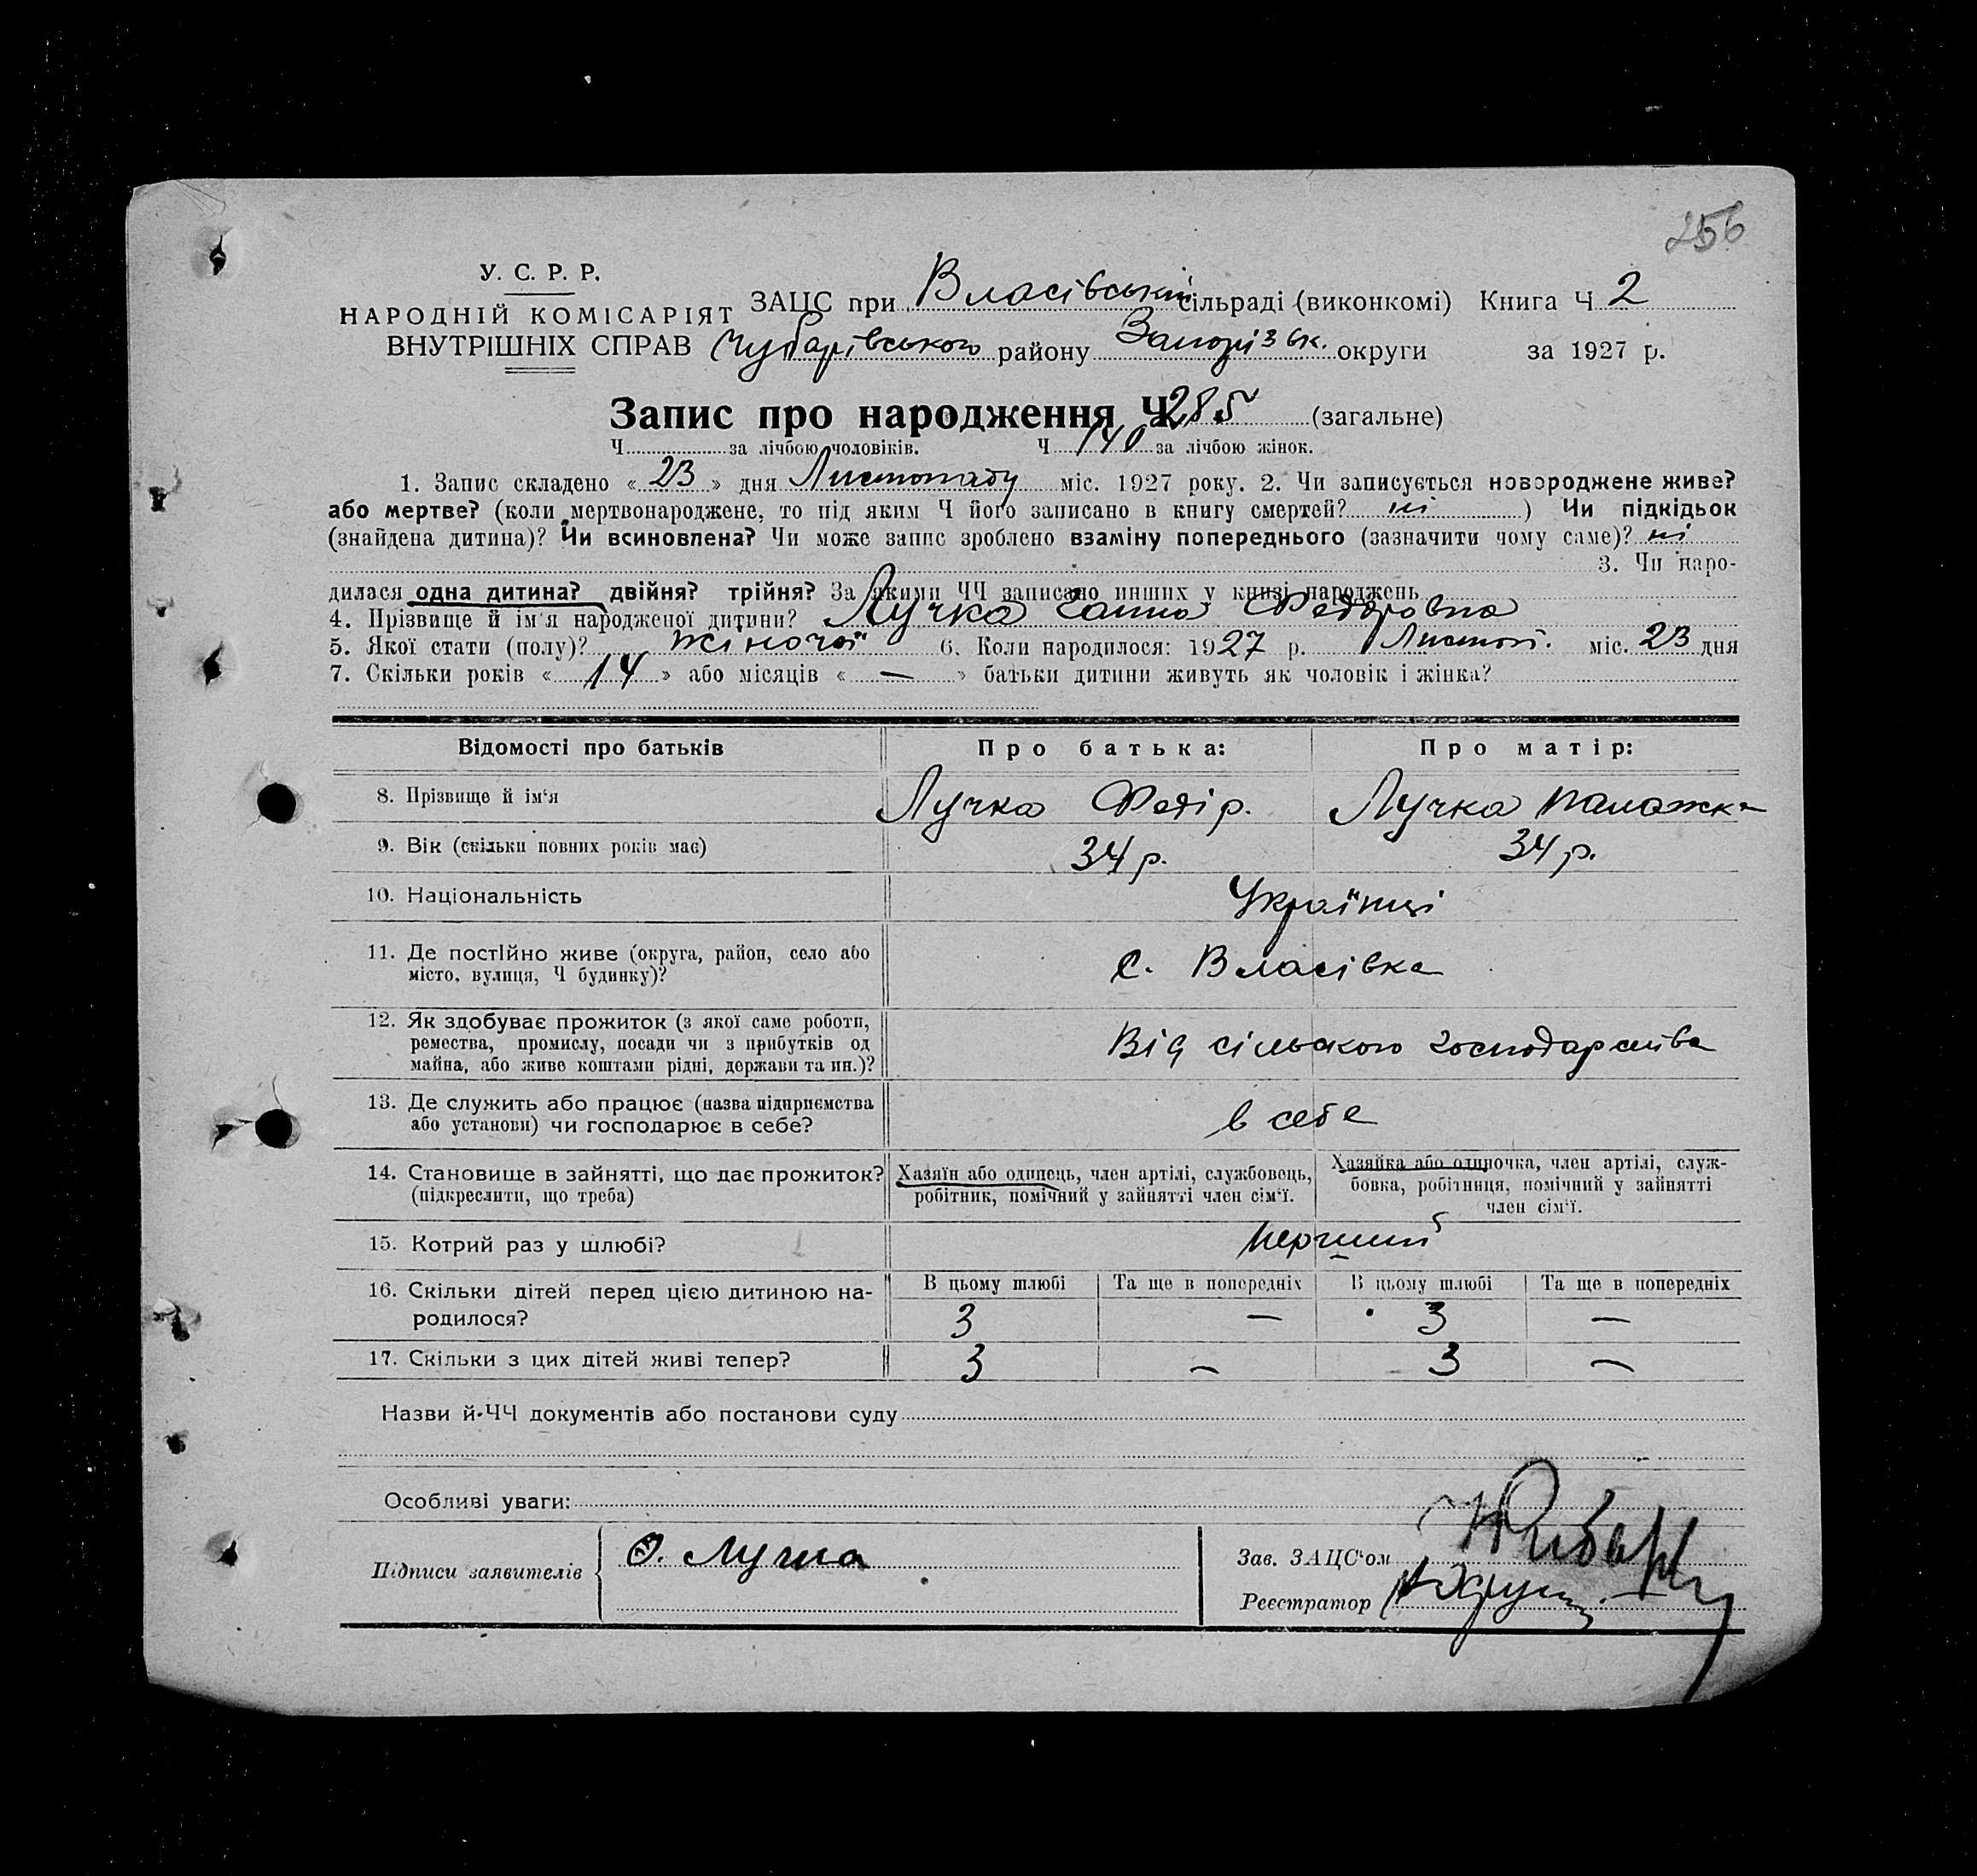 256
У. С. Р. Р.
НАРОДНІЙ КОМІСАРІЯТ
ВНУТРІШНІХ СПРАВ
ЗАЦС при Власівській сільраді (виконкомі) Книга Ч 2
Чубарівського району Запорізьк. округи за 1927 р.
Запис про народження Ч 285 (загальне)
Ч за лічбою чоловіків. Ч 140 за лічбою жінок.
1. Запис складено «23» дня Листопаду міс. 1927 року. 2. Чи записується новороджене живе?
або мертве? (коли мертвонароджене, то під яким Ч його записано в книгу смертей? ні ) Чи підкідьок
(знайдена дитина)? Чи всиновлена? Чи може запис зроблено взаміну попереднього (зазначити чому саме)? ні
3. Чи наро-
дилася одна дитина? двійня? трійня? За якими ЧЧ записано инших у книзі народжень
4. Прізвище й ім'я народженої дитини? Лучка Ганна Федоровна
5. Якої стати (полу)? жіночої 6. Коли народилося: 1927 р. Листоп. міс. 23 дня
7. Скільки років «14» або місяців «—» батьки дитини живуть як чоловік і жінка?
Відомості про батьків Про батька: Про матір:
8. Прізвище й ім'я Лучка Федір. Лучка Палажка
9. Вік (скільки повних років має) 34 р. 34 р.
10. Національність Українці
11. Де постійно живе (округа, район, село або
місто, вулиця, Ч будинку)? с. Власівка
12. Як здобуває прожиток (з якої саме роботи,
ремества, промислу, посади чи з прибутків од
майна, або живе коштами рідні, держави та ин.)? Від сільского господарства
13. Де служить або працює (назва підприємства
або установи) чи господарює в себе? в себе
14. Становище в зайнятті, що дає прожиток?
(підкреслити, що треба)
Хазяїн або одинець, член артілі, службовець,
робітник, помічний у зайнятті член сім'ї.
Хазяйка або одиночка, член артілі, служ-
бовка, робітниця, помічний у зайнятті
член сім'ї.
15. Котрий раз у шлюбі? перший
16. Скільки дітей перед цією дитиною на-
родилося?
В цьому шлюбі Та ще в попередніх В цьому шлюбі Та ще в попередніх
3 — 3 —
17. Скільки з цих дітей живі тепер? 3 — 3 —
Назви й ЧЧ документів або постанови суду
Особливі уваги:
Підписи заявителів Ф. Лучка
Зав. ЗАЦС'ом
Реєстратор